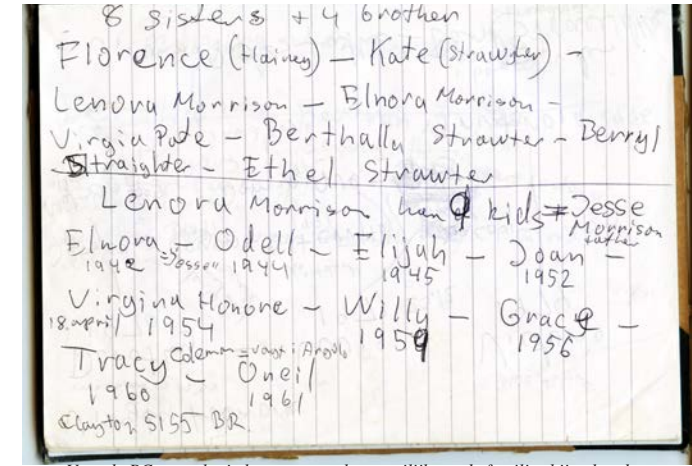 8 sisters + 4 brother
Florence (Hainey) — Kate (Strawter) —
Lenora Morrison — Elnora Morrison —
Virgia Pate — Berthally Strawter — Berryl
Straighter — Ethel Strawter
Lenora Morrison han 9 kids = Jesse
Morrison
father
Elnora — Odell — Elijah — Joan —
1942 1944 1945 1952
Virgina Honore — Willy — Grace —
18. april 1954 1959 1956
Tracy Coleman = vagt i Angola
— Oneil
1960 1961
Clayton 5155 BR